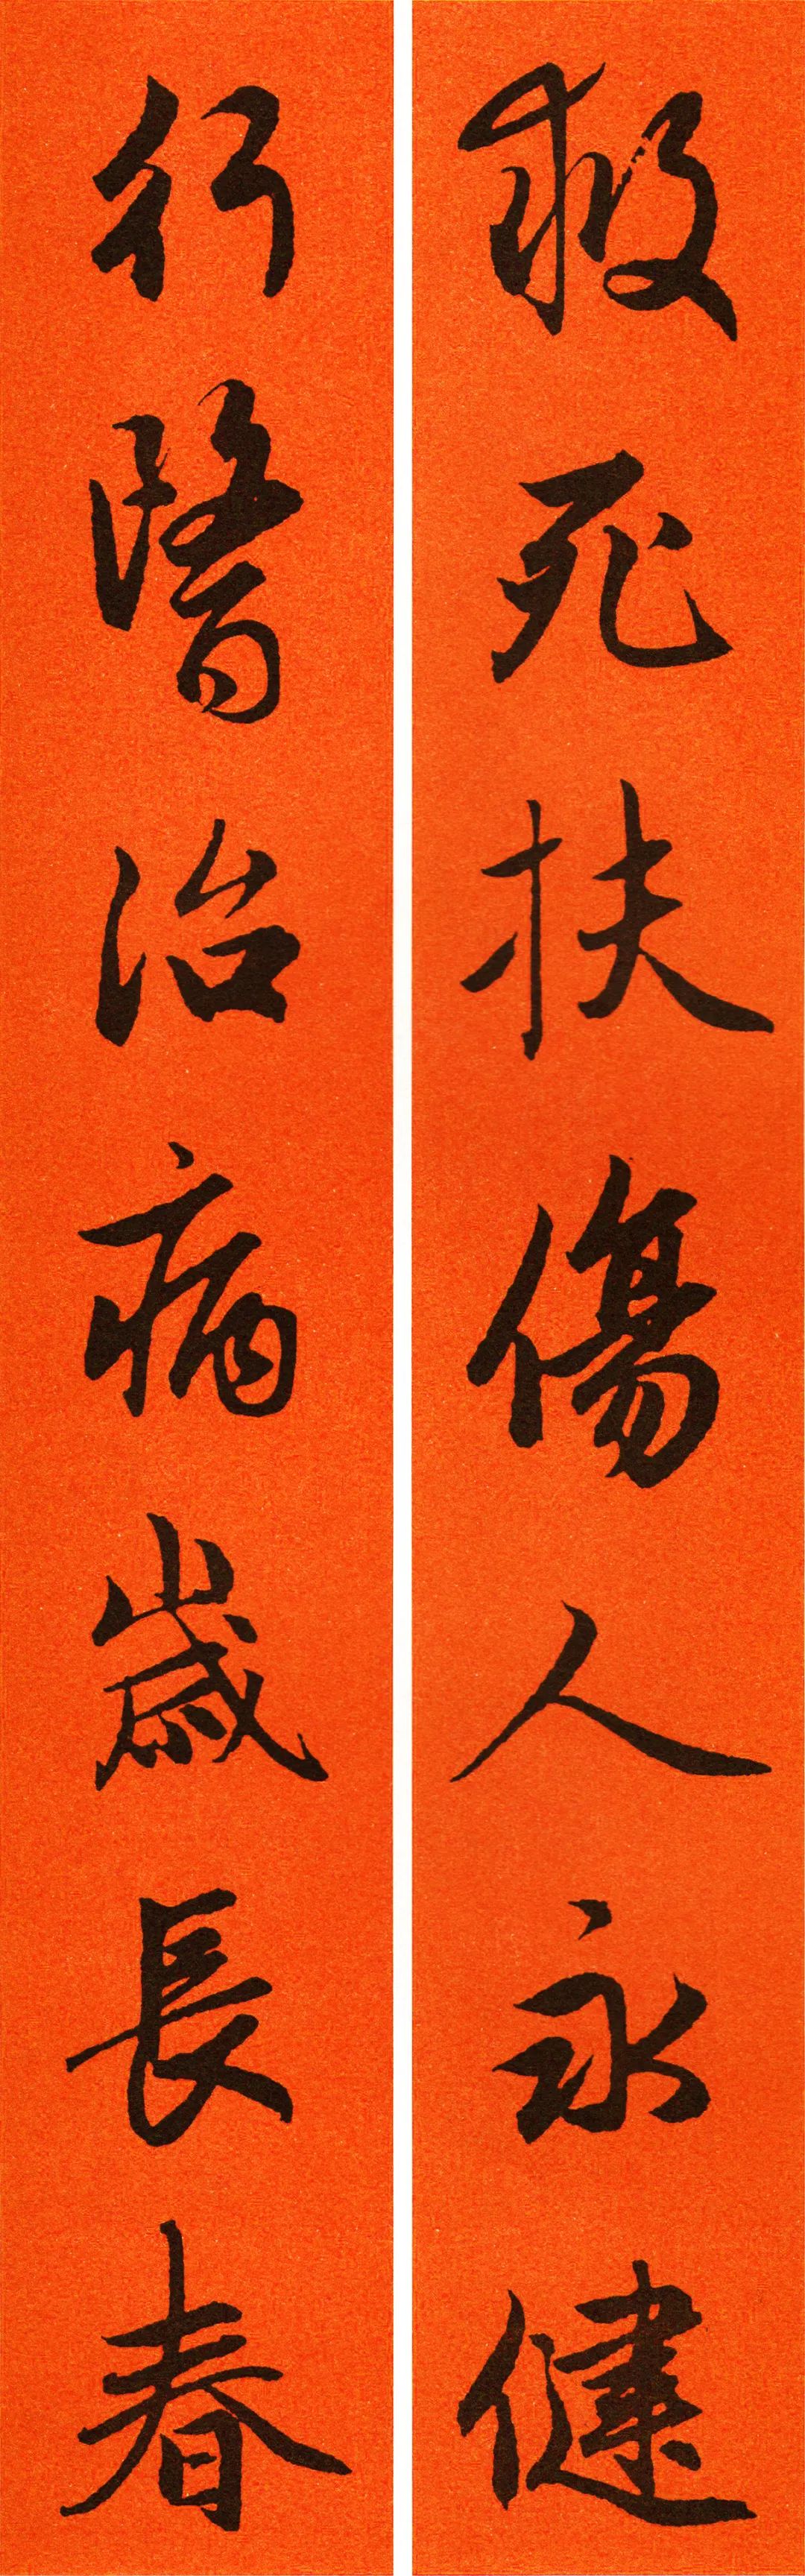 救死扶傷人永健
行醫治病歲長春